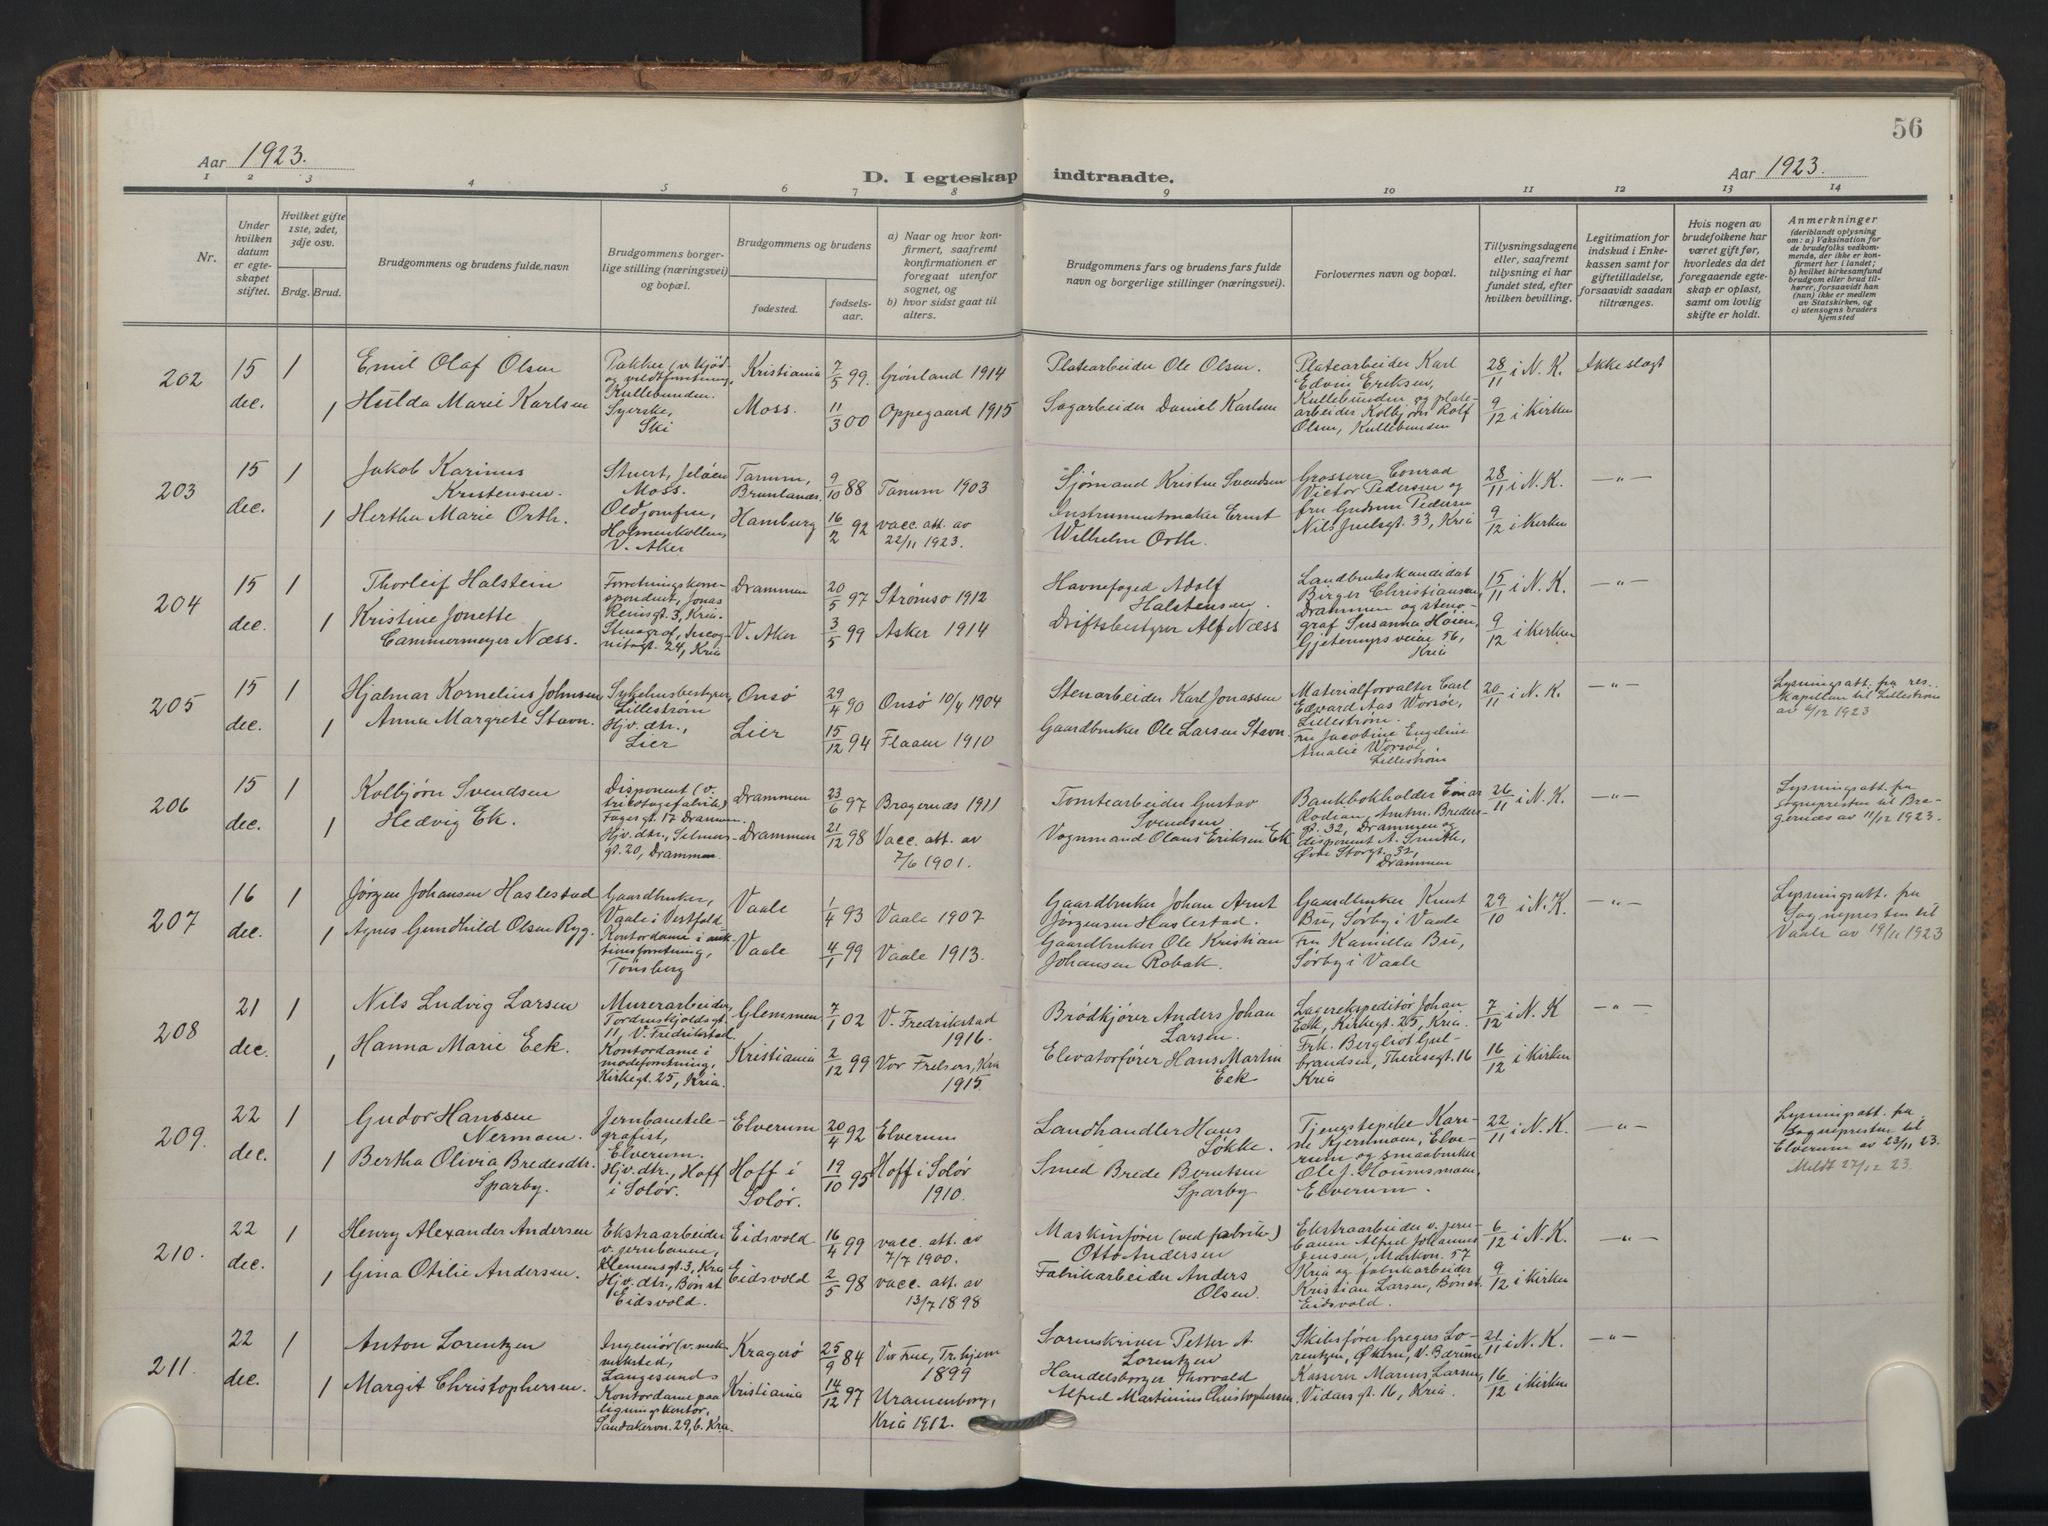 56
Aar 1923.
D. I egteskap indtraadte.
Aar 1923.
1 2 3 4 5 6 7 8 9 10 11 12 13 14
Nr.
Under hvilken datum er egteskapet stiftet.
Hvilket gifte 1ste, 2det, 3dje osv.
Brdg. Brud.
Brudgommens og brudens fulde navn
Brudgommens borgerlige stilling (næringsvei) og bopæl.
Brudgommens og brudens
fødested.
fødselsaar.
a) Naar og hvor konfirmert, saafremt konfirmationen er foregaat utenfor sognet, og
b) hvor sidst gaat til alters.
Brudgommens fars og brudens fars fulde navn og borgerlige stillinger (næringsvei).
Forlovernes navn og bopæl.
Tillysningsdagene eller, saafremt tillysning ei har fundet sted, efter hvilken bevilling.
Legitimation for indskud i Enkekassen samt for giftetilladelse, forsaavidt saadan tiltrænges.
Hvis nogen av brudefolkene har været gift før, hvorledes da det foregaaende egteskap er opløst, samt om lovlig skifte er holdt.
Anmerkninger
(deriblandt oplysning om: a) Vaksination for de brudefolks vedkommende, der ikke er konfirmert her i landet;
b) hvilket kirkesamfund brudgom eller brud tilhører, forsaavidt han (hun) ikke er medlem av Statskirken, og
c) utensogns bruders hjemsted
202
15 dec.
1
Emil Olaf Olsen
Pakker (v. kjød- og vildtforretning, Kullebunden.
Kristiania
7/5 99.
Grønland 1914
Platearbeider Ole Olsen.
Platearbeider Karl Edvin Eriksen, Kullebunden og platearbeider Kolbjørn Rolf Olsen, Kullebunden
28/11 i N. K.
Ikke slegt
1
Hulda Marie Karlsen
Syerske, Ski
Moss.
11/3 00
Oppegaard 1915
Sagarbeider Daniel Karlsen
9/12 i Kirken
203
15 dec.
1
Jakob Karinus Kristensen.
Stuert, Jeløen Moss.
Tanum, Brunlanæs.
9/10 88
Tanum 1903
Sjømand Kristen Svendsen
Grosserer Conrad Victor Pedersen og fru Gudrun Pedersen Nils Juelsgt. 33, Kria
28/11 i N. K.
— " —
1
Hertha Marie Orth.
Oldjomfru, Holmenkollen, V. Aker
Hamburg
16/2 92
vacc. att. av 22/11 1923.
Instrumentmaker Ernst Wilhelm Orth.
9/12 i Kirken
204
15 dec.
1
Thorleif Halstein
Forretningskorrespondent, Jonas Reinsgt. 3, Kria.
Drammen
20/5 97
Strømsø 1912
Havnefoged Adolf Halstensen.
Landbrukskandidat Birger Christiansen, Drammen og stenograf Susanna Høien, Gjetemyrsveien 56, Kria
15/11 i N. K.
— " —
1
Kristine Jonette Cammermeyer Næss.
Stenograf, Incognitogt. 24, Kria
V. Aker
3/5 99
Asker 1914
Driftsbestyrer Alf Næss
9/12 i Kirken
205
15 dec.
1
Hjalmar Kornelius Johnsen
Sykehusbestyrer, Lillestrøm
Onsø
29/4 90
Onsø 10/4 1904
Stenarbeider Karl Jonassen
Materialforvalter Carl Edward Aas Worsøe, Lillestrøm. Fru Jacobine Engeline Amalie Worsøe, Lillestrøm
20/11 i N. K.
— " —
Lysningsatt. fra res. kapellan til Lillestrøm av 6/12 1923
1
Anna Margrete Stavn.
Hjv. dtr., Lier
Lier
15/12 94
Flaaen 1910
Gaardbruker Ole Larsen Stavn.
206
15 dec.
1
Kolbjørn Svendsen
Disponent (v. tricotagefabrik) Fagersgt. 17 Drammen.
Drammen
23/6 97
Bragernæs 1911
Tomtearbeider Gustav Svendsen
Bankbokholder Einar Rodian, Amtm. Bredersgt. 32, Drammen og disponent A. Smith, Øvre Storgt. 32, Drammen
26/11 i N. K.
— " —
Lysningsatt. fra sognepresten til Bragernæs av 11/12 1923.
1
Hedvig Ek.
Hjv. dtr., Selmersgt. 20, Drammen
Drammen
21/12 98
Vacc. att. av 7/6 1901.
Vognmand Olaus Eriksen Ek
207
16 dec.
1
Jørgen Johansen Haslestad
Gaardbruker, Vaale i Vestfold
Vaale
1/4 93
Vaale 1907
Gaardbruker Johan Arnt Jørgensen Haslestad.
Gaardbruker Knut Bu, Sørby i Vaale Fru Kamilla Bu, Sørby i Vaale
29/10 i N. K.
— " —
Lysningsatt. fra Sognepresten til Vaale av 19/11 1923
1
Agnes Gundhild Olsen Ryg.
Kontordame i auktionsforretning, Tønsberg
Vaale
4/1 99
Vaale 1913.
Gaardbruker Ole Kristian Johansen Robak.
208
21 dec.
1
Nils Ludvig Larsen
Murerarbeider, Tordenskjoldsgt. 11, V. Fredrikstad.
Glemmen
7/1 02
V. Fredrikstad 1916.
Brødkjører Anders Johan Larsen.
Lagerekspeditør Johan Eek, Kirkegt. 25, Kria. Frk. Bergliot Gulbrandsen, Theresegt. 16 Kria
7/12 i N. K
— " —
1
Hanna Marie Eek.
Kontordame i modeforretning, Kirkegt. 25, Kria.
Kristiania
2/12 99
Vor Frelsers, Kria 1915
Elevatorfører Hans Martin Eek
16/12 i Kirken
209.
22 dec.
1
Gudor Hanssen Nermoen.
Jernbanetelegrafist, Elverum.
Elverum
20/4 92
Elverum
Landhandler Hans Løkke.
Tjenestepike Karine Kjernmoen, Elverum og smaabruker Ole J. Hounsmoen, Elverum.
22/11 i N. K.
— " —
Lysningsatt. fra Sognepresten til Elverum av 23/11 23.
Meldt 27/12 23.
1
Bertha Olivia Bredesdtr. Sparby.
Hjv. dtr., Hoff i Solør.
Hoff i Solør.
19/10 95
Hoff i Solør 1910.
Smed Brede Berntsen Sparby
210.
22 dec.
1
Henry Alexander Andersen
Ekstraarbeider v. jernbanen, Klemensgt. 3, Kria
Eidsvold
16/4 99
vacc. att. av 7/7 1900.
Maskinfører (ved fabrik.) Otto Andersen
Ekstraarbeider v. jernbanen Alfred Johannes Jensen, Markvn. 57 Kria og fabrikarbeider Kristian Larsen, Bøn st. Eidsvold.
6/12 i N. K.
— " —
1
Gina Otilie Andersen.
Hjv. dtr., Bøn st Eidsvold.
Eidsvold
2/5 98
vacc. att. av 13/7 1898
Fabrikarbeider Anders Olsen.
9/12 i Kirken
211.
22 dec.
1
Anton Lorentzen
Ingeniør (v. mek. verksted, Langesund
Kragerø
25/9 84
Vor Frue, Tr.hjem 1899
Sorenskriver Petter A. Lorentzen
Skibsfører Gregers Lorentzen, Økern, V. Bærum
21/11 i N. K.
— " —
1
Margit Christophersen.
Kontordame paa ligningskontor, Sandakervn. 29, b. Kria.
Kristiania
14/12 97
Uranienborg, Kria 1912.
Handelsborger Thorvald Alfred Martinius Christophersen.
Kasserer Marius Larsen, Vidarsgt. 16, Kria.
16/12 i Kirken